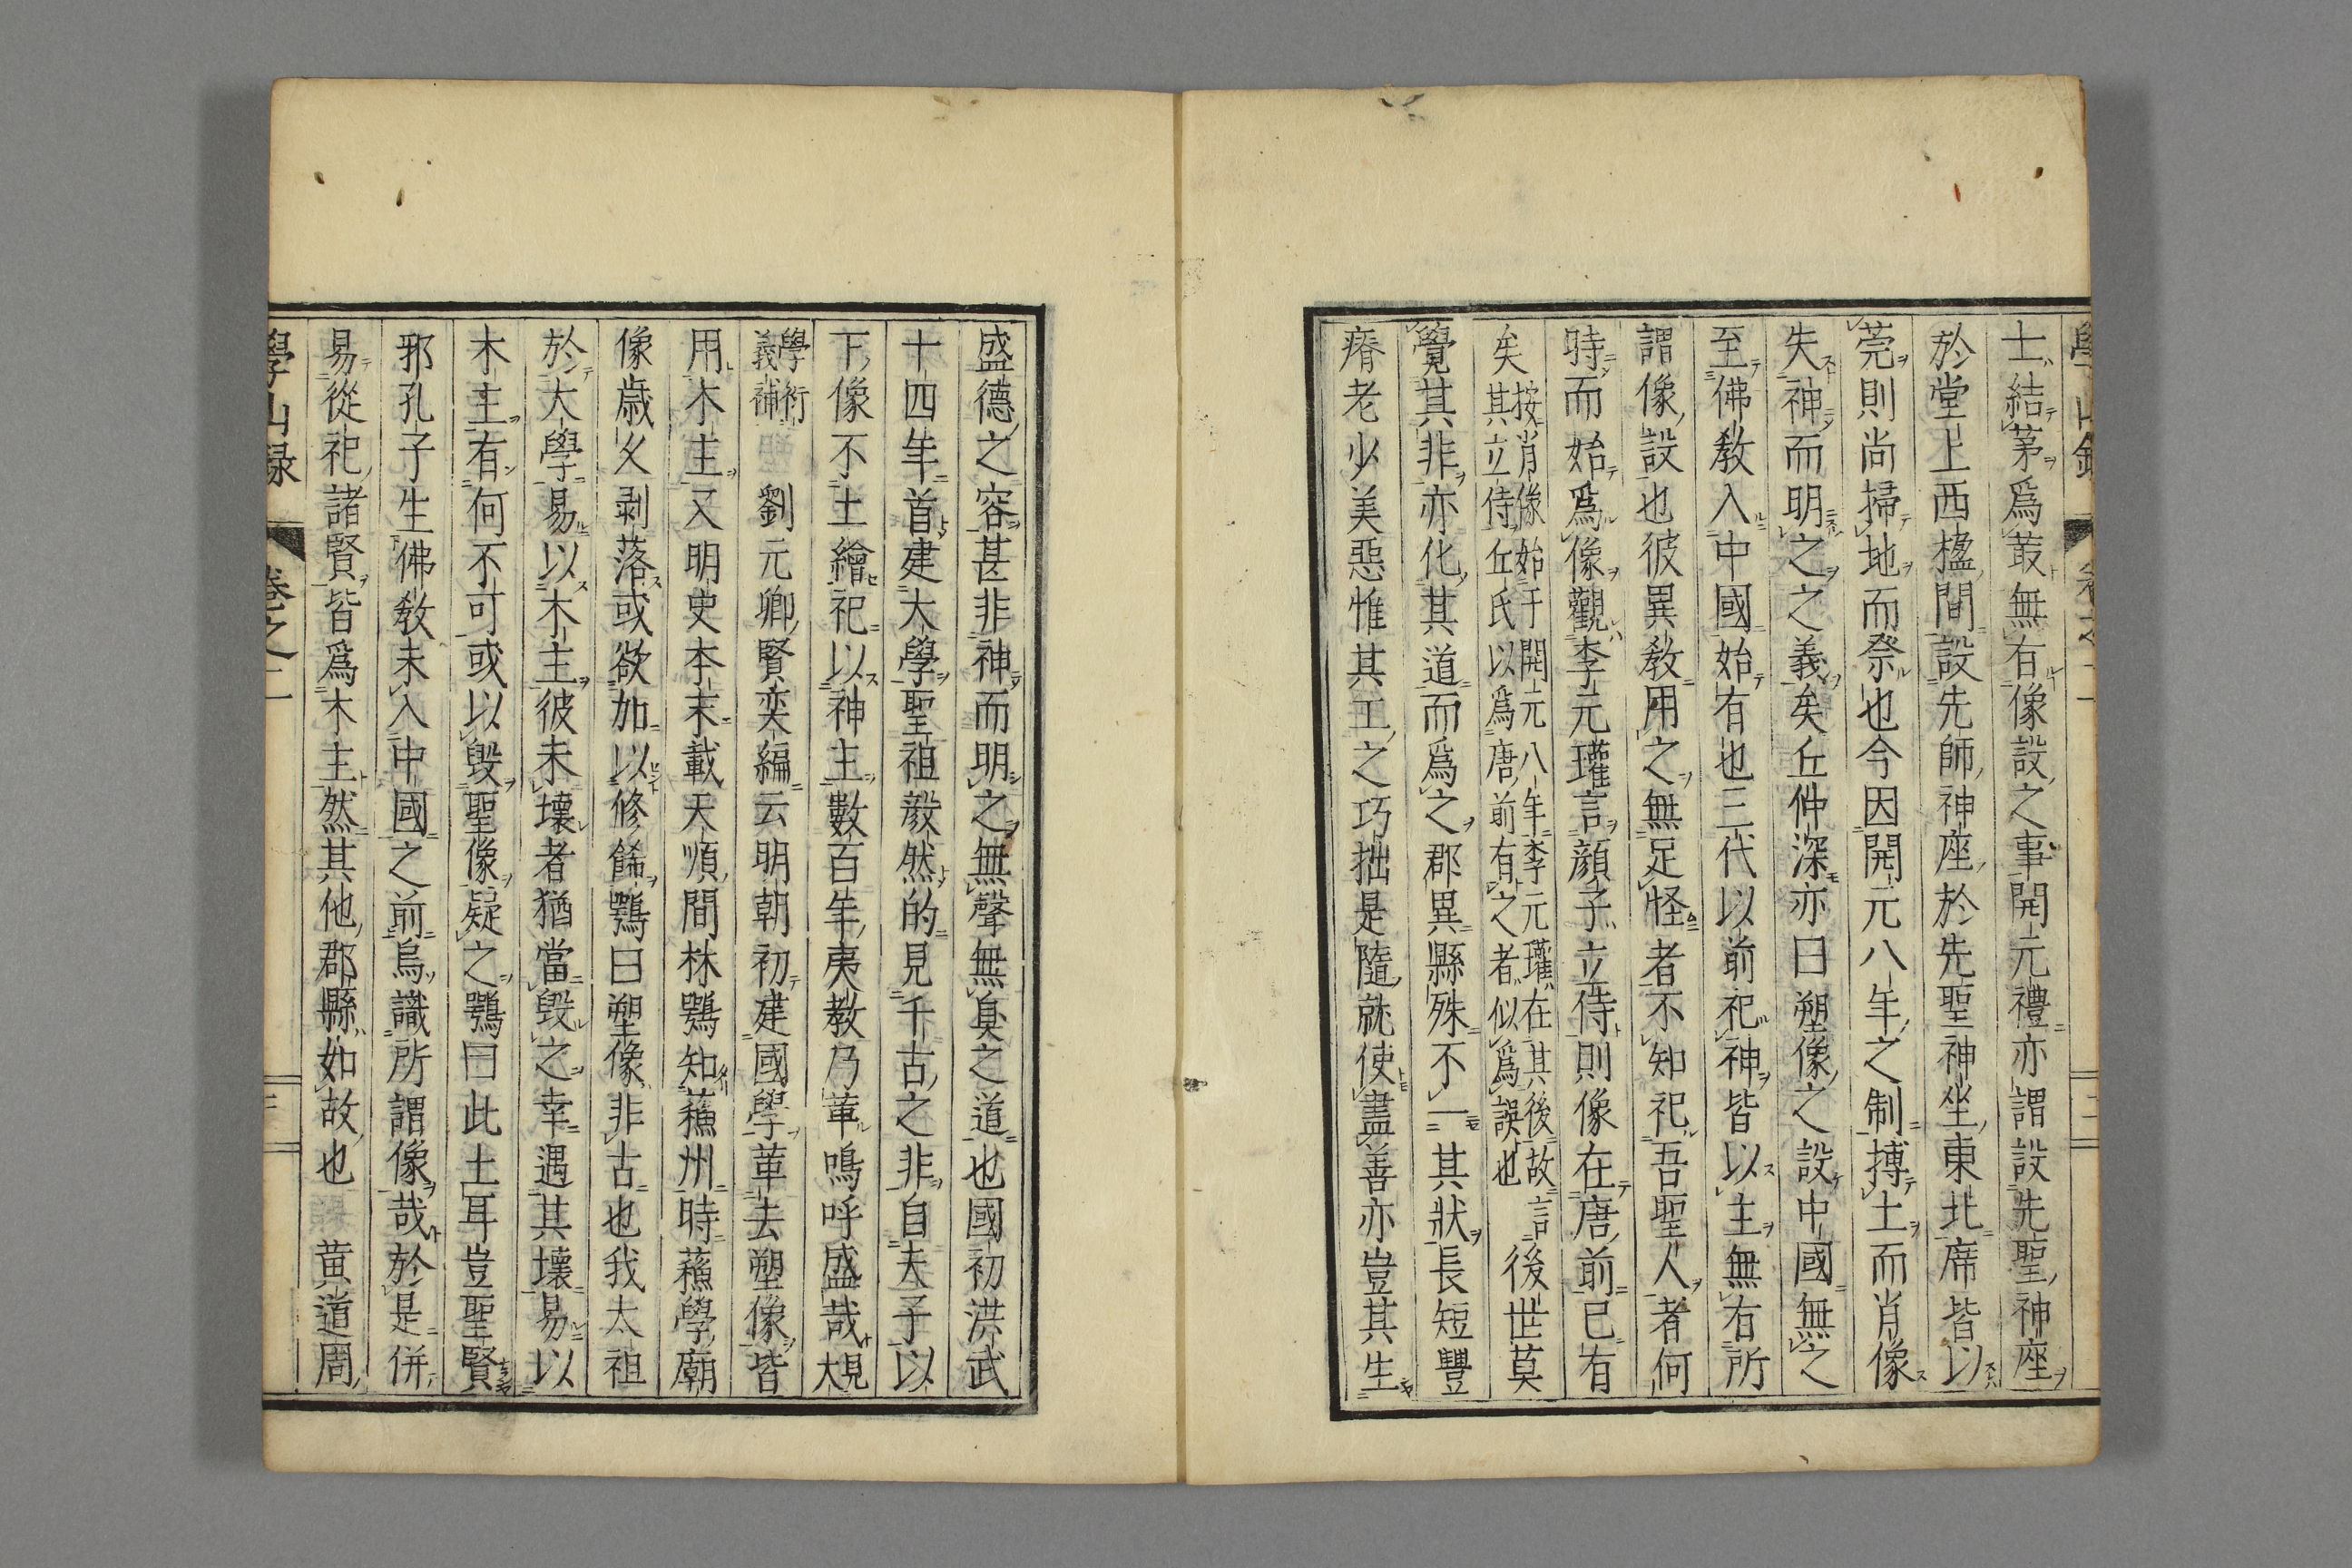 士結茅爲菆無有像設之事開元禮亦謂設先聖神座
於堂上西楹間設先師神座於先聖神坐東北席皆以
莞則尚掃地而祭也今因開元八年之制摶土而肖像
失神而明之之義矣丘仲深亦曰塑像之設中國無之
至佛教入中國始有也三代以前祀神皆以主無有所
謂像設也彼異教用之無足怪者不知祀吾聖人者何
時而始爲像觀李元瓘言顔子立侍則像在唐前已有
矣按肖像始于開元八年李元瓘在其後故言其立侍丘氏以爲唐前有之者似爲誤也後世莫
覺其非亦化其道而爲之郡異縣殊不一其狀長短豐
瘠老少美惡惟其工之巧拙是隨就使盡善亦豈其生
盛德之容甚非神而明之無聲無臭之道也國初洪武
十四年首建大學聖祖毅然的見千古之非自夫子以
下像不土繪祀以神主數百年夷教乃革嗚呼盛哉見大
學衍義補劉元卿賢奕編云明朝初建國學革去塑像皆
用木主又明史本末載天順間林鶚知蘇州時蘇學廟
像歳久剥落或欲加以修餙鶚曰塑像非古也我太祖
於大學易以木主彼未壞者猶當毀之幸遇其壞易以
木主有何不可或以毀聖像疑之鶚曰此土耳豈聖賢
邪孔子生佛教未入中國之前烏識所謂像哉於是併
易從祀諸賢皆爲木主然其他郡縣如故也　黄道周
學山録　卷之二